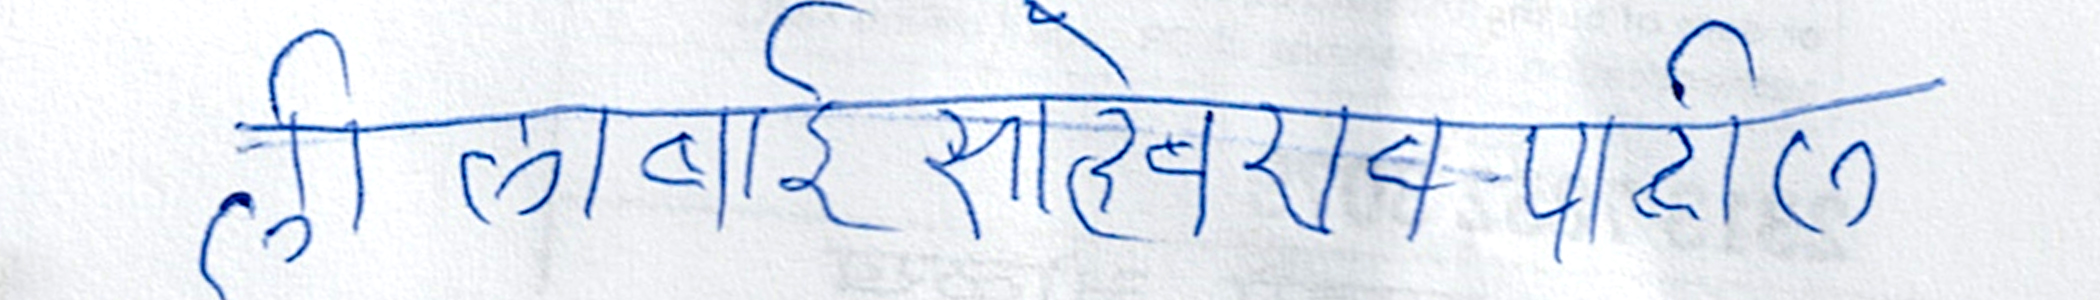 लीलाबाई साहेबराव पाटील